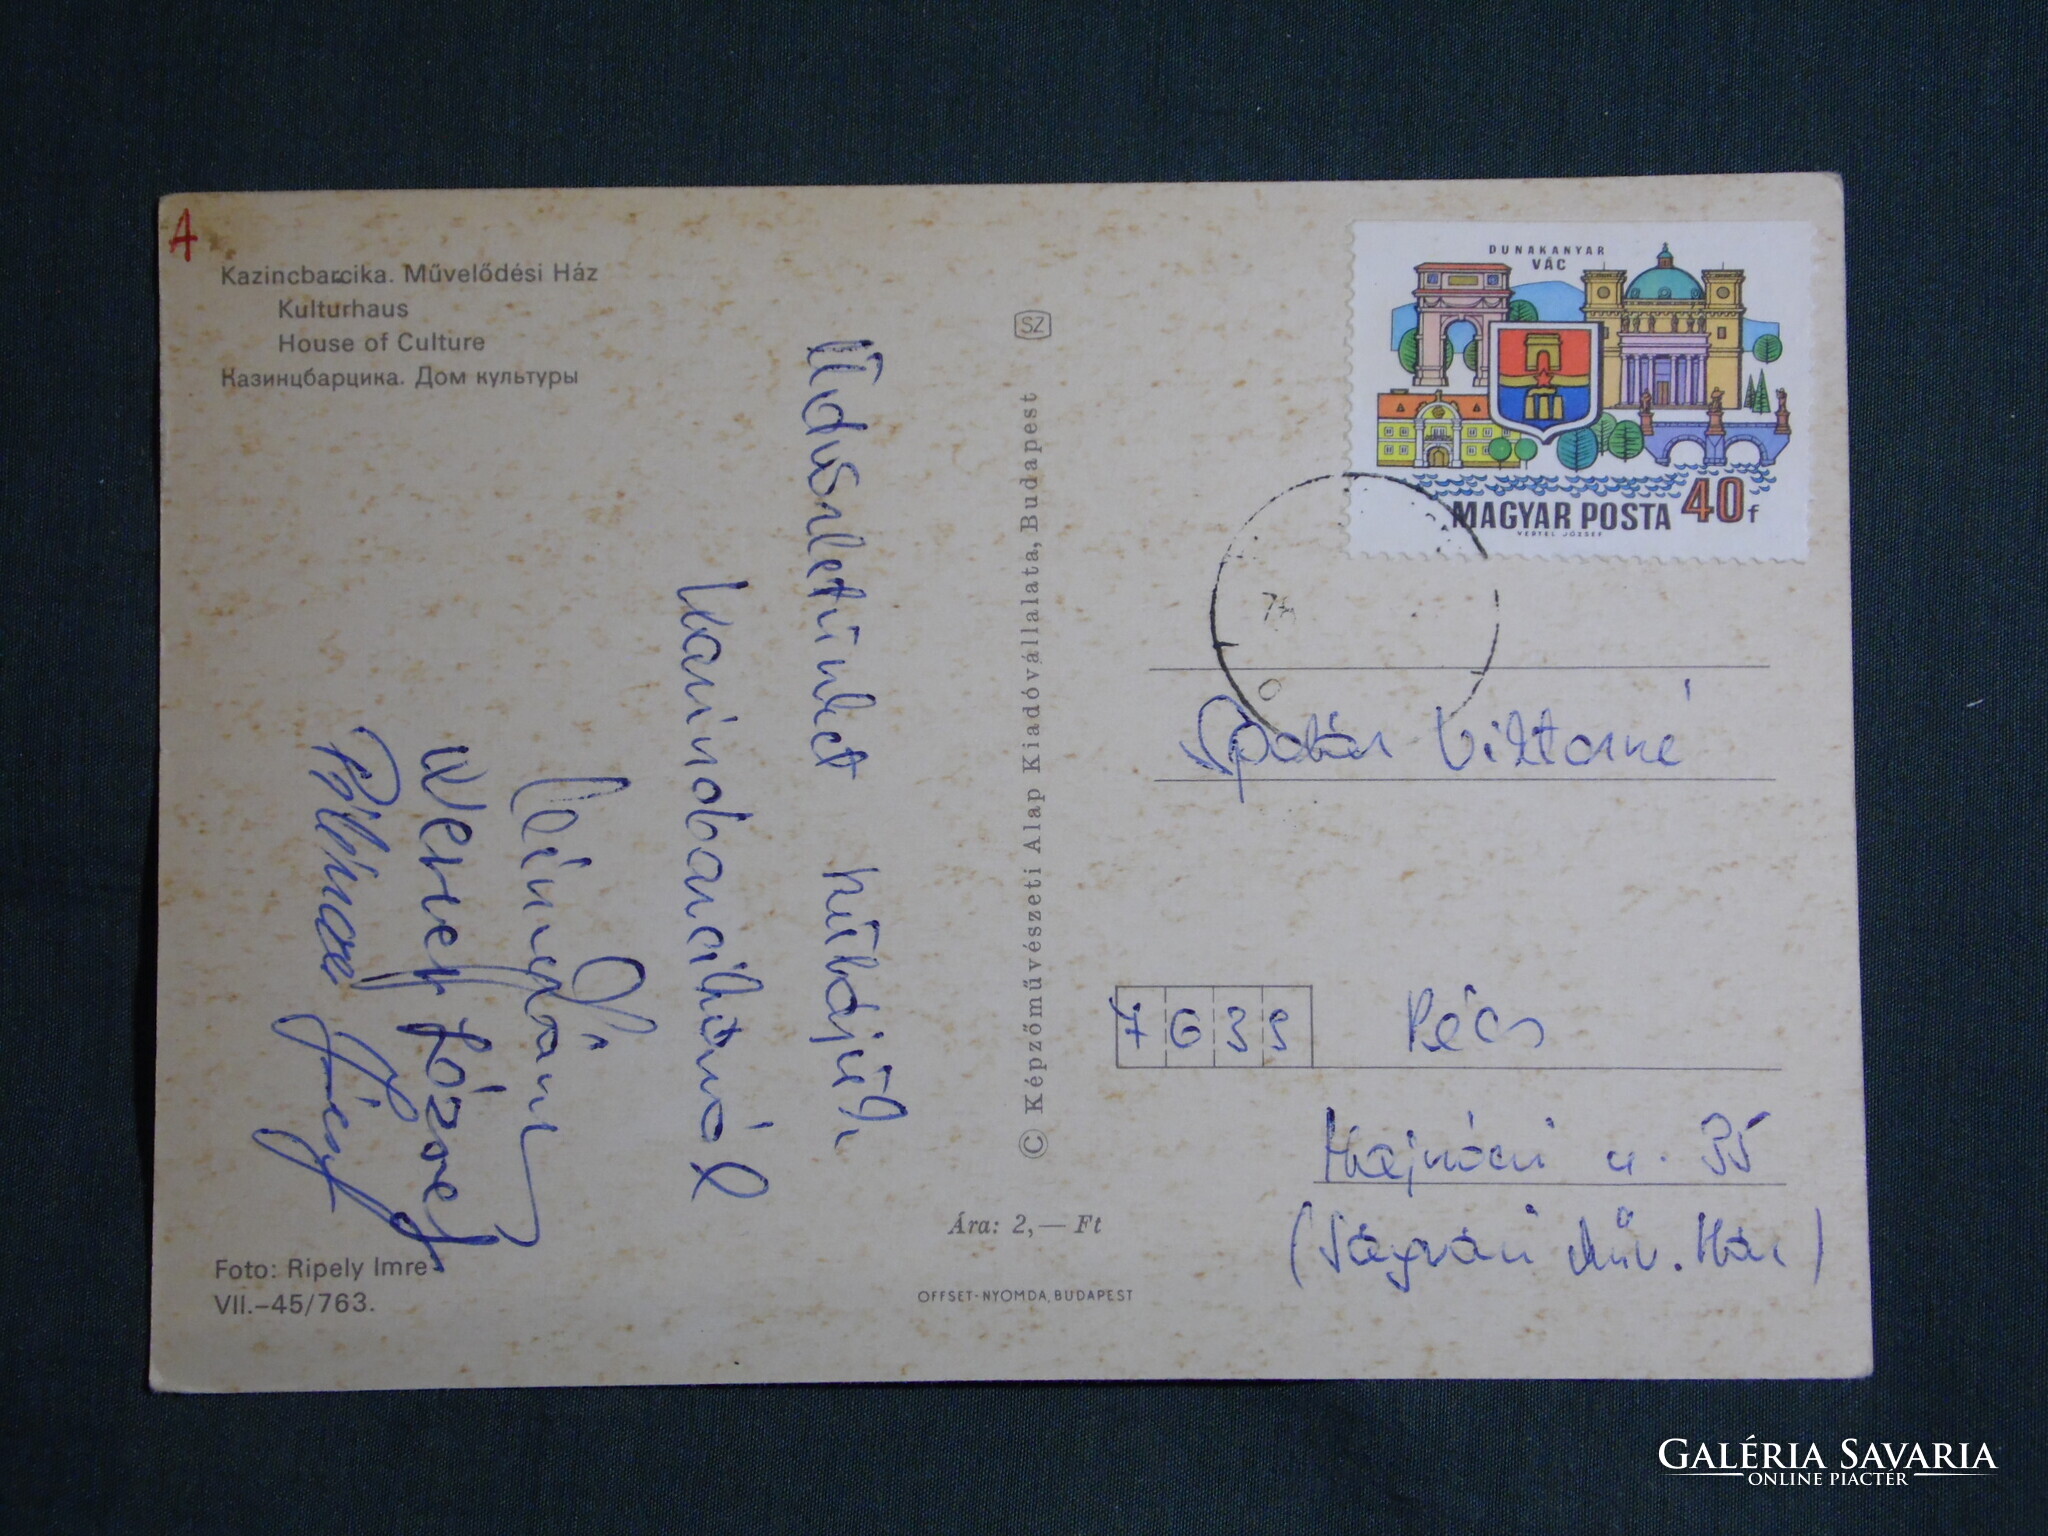 A
Kazincbarcika. Művelődési Ház
Kulturhaus
House of Culture
Казинцбарцика. Дом культуры
Üdvözletünket küldjük
Kazincbarcikáról
Werner József
Foto: Ripely Imre
VII.–45/763.
SZ
© Képzőművészeti Alap Kiadóvállalata, Budapest
Ára: 2,— Ft
OFFSET-NYOMDA, BUDAPEST
DUNAKANYAR
VÁC
MAGYAR POSTA 40f
VERTEL JÓZSEF
Viktorné
7633 Pécs
Hajnóczi u.
(Ságvári Műv. Ház)
GALÉRIA SAVARIA
ONLINE PIACTÉR